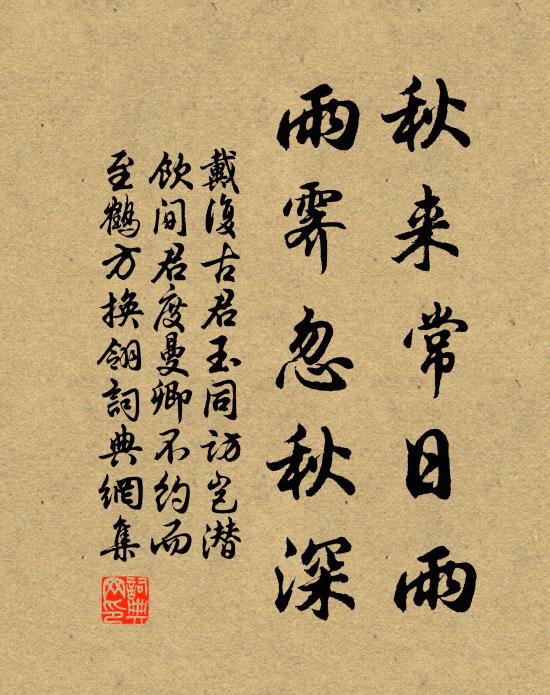 秋来常日雨
雨霁忽秋深
戴復古君玉同訪岂潜
飲间君度曼卿不约而
至鶴方换翎詞典網集
詞典网印